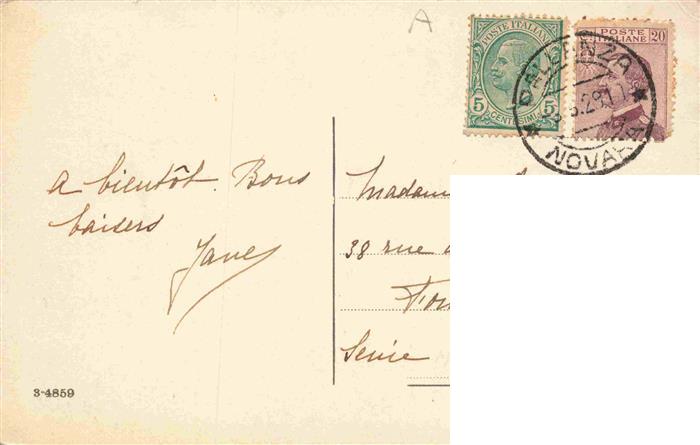 A
POSTE ITALIANE
5 5
CENTESIMI
POSTE
ITALIANE 20
PALLANZA
NOVARA
A bientôt. Bons
baisers
Jane
Madam
38 rue
Seine
3-4859